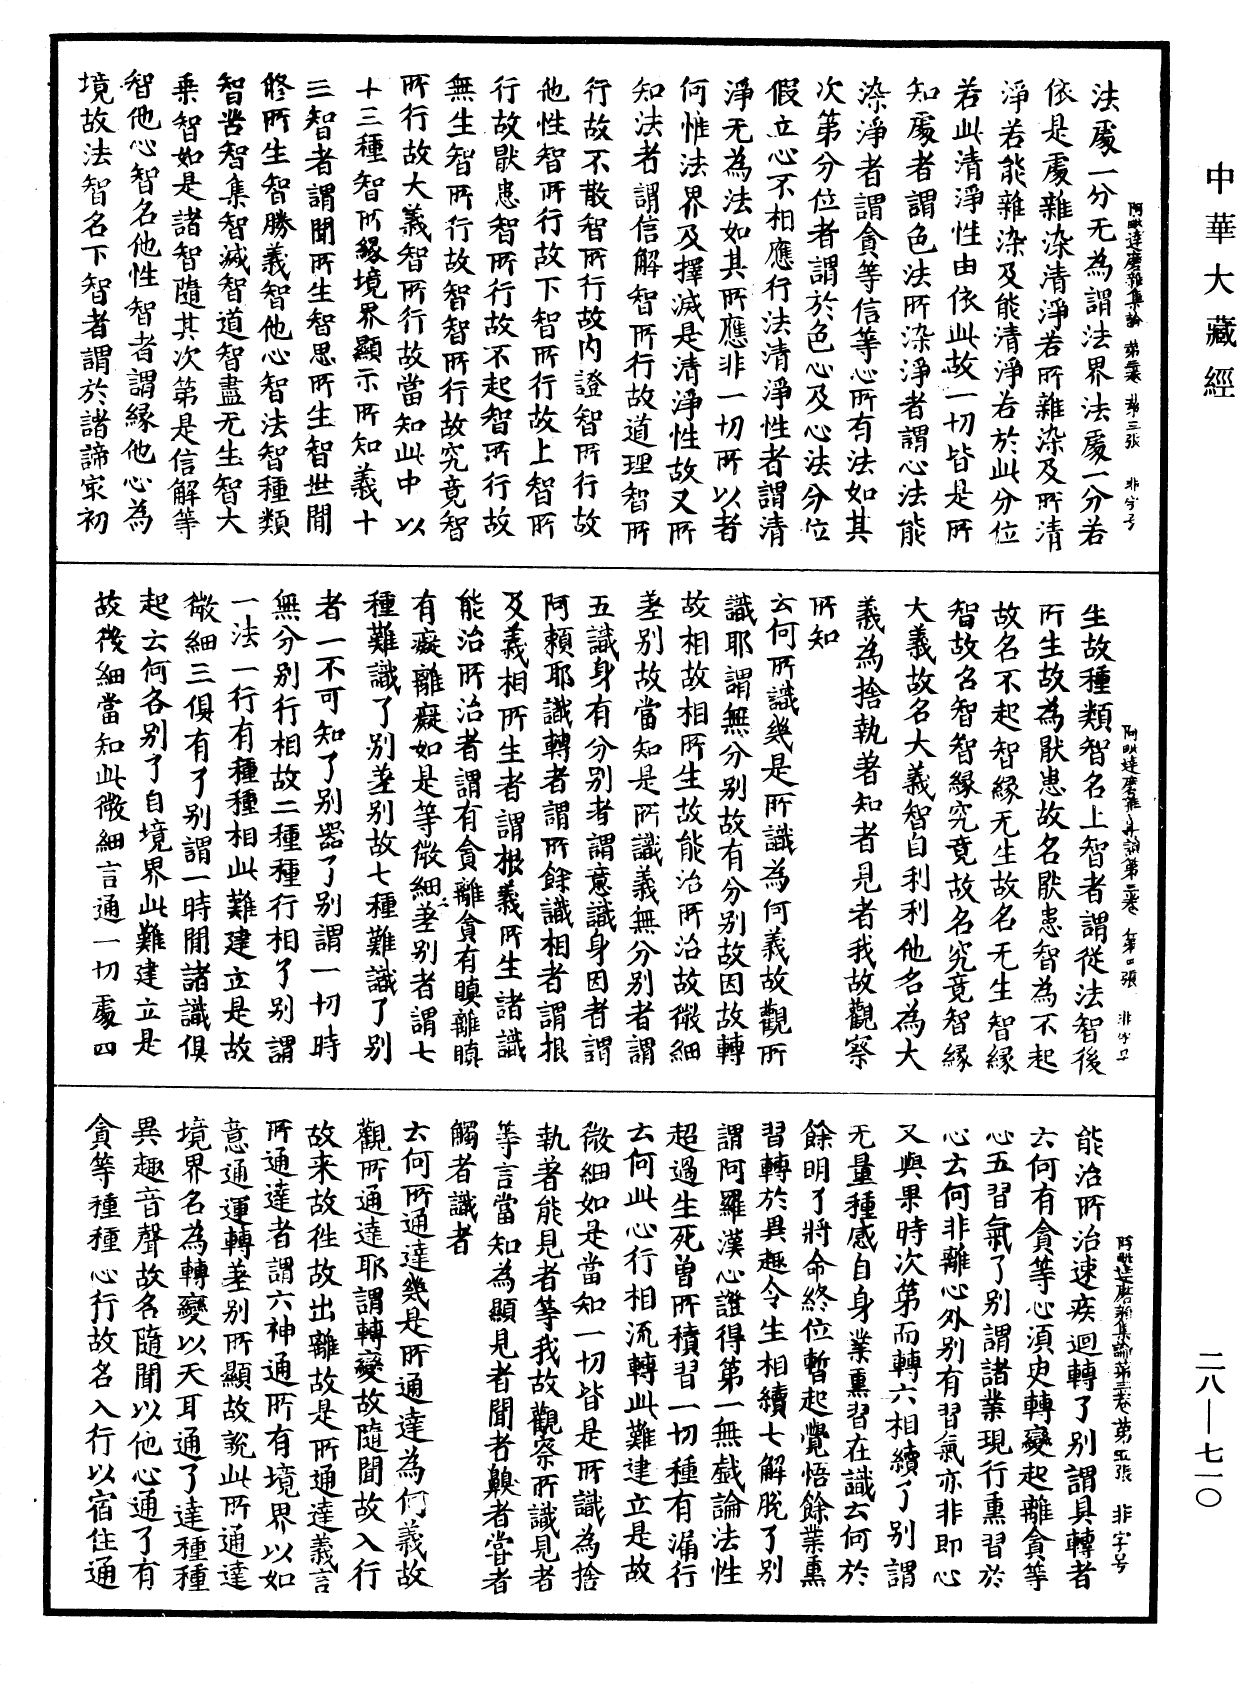 中華大藏經
阿毗達磨雜集論 第三卷 第三張 非字号
法處一分无為謂法界法處一分若
依是處雜染清淨若所雜染及所清
淨若能雜染及能清淨若於此分位
若此清淨性由依此故一切皆是所
知處者謂色法所染淨者謂心法能
染淨者謂貪等信等心所有法如其
次第分位者謂於色心及心法分位
假立心不相應行法清淨性者謂清
淨无為法如其所應非一切所以者
何惟法界及擇滅是清淨性故又所
知法者謂信解智所行故道理智所
行故不散智所行故內證智所行故
他性智所行故下智所行故上智所
行故猒患智所行故不起智所行故
無生智所行故智智所行故究竟智
所行故大義智所行故當知此中以
十三種智所緣境界顯示所知義十
三智者謂聞所生智思所生智世間
修所生智勝義智他心智法智種類
智苦智集智滅智道智盡无生智大
乘智如是諸智隨其次第是信解等
智他心智名他性智者謂緣他心為
境故法智名下智者謂於諸諦冣初
阿毗達磨雜集論第三卷 第四張 非字号
生故種類智名上智者謂從法智後
所生故為猒患故名猒患智為不起
故名不起智緣无生故名无生智緣
智故名智智緣究竟故名究竟智緣
大義故名大義智自利利他名為大
義為捨執著知者見者我故觀察
所知
云何所識幾是所識為何義故觀所
識耶謂無分別故有分別故因故轉
故相故相所生故能治所治故微細
差別故當知是所識義無分別者謂
五識身有分別者謂意識身因者謂
阿賴耶識轉者謂所餘識相者謂根
及義相所生者謂根義所生諸識
能治所治者謂有貪離貪有瞋離瞋
有癡離癡如是等微細差別者謂七
種難識了別差別故七種難識了別
者一不可知了別器了別謂一切時
無分別行相故二種種行相了別謂
一法一行有種種相此難建立是故
微細三俱有了別謂一時間諸識俱
起云何各別了自境界此難建立是
故微細當知此微細言通一切處四
阿毗達磨雜集論第三卷第五張 非字号
能治所治速疾迴轉了別謂具轉者
云何有貪等心湏臾轉變起離貪等
心五習氣了別謂諸業現行熏習於
心云何非離心外別有習氣亦非即心
又與果時次第而轉六相續了別謂
无量種感自身業熏習在識云何於
餘明了將命終位暫起覺悟餘業熏
習轉於異趣令生相續七解脫了別
謂阿羅漢心證得第一無戲論法性
超過生死曾所積習一切種有漏行
云何此心行相流轉此難建立是故
微細如是當知一切皆是所識為捨
執著能見者等我故觀察所識見者
等言當知為顯見者聞者齅者甞者
觸者識者
云何所通達幾是所通達為何義故
觀所通達耶謂轉變故隨聞故入行
故来故徃故出離故是所通達義言
所通達者謂六神通所有境界以如
意通運轉差別所顯故說此所通達
境界名為轉變以天耳通了達種種
異趣音聲故名隨聞以他心通了有
貪等種種心行故名入行以宿住通
二八—七一〇